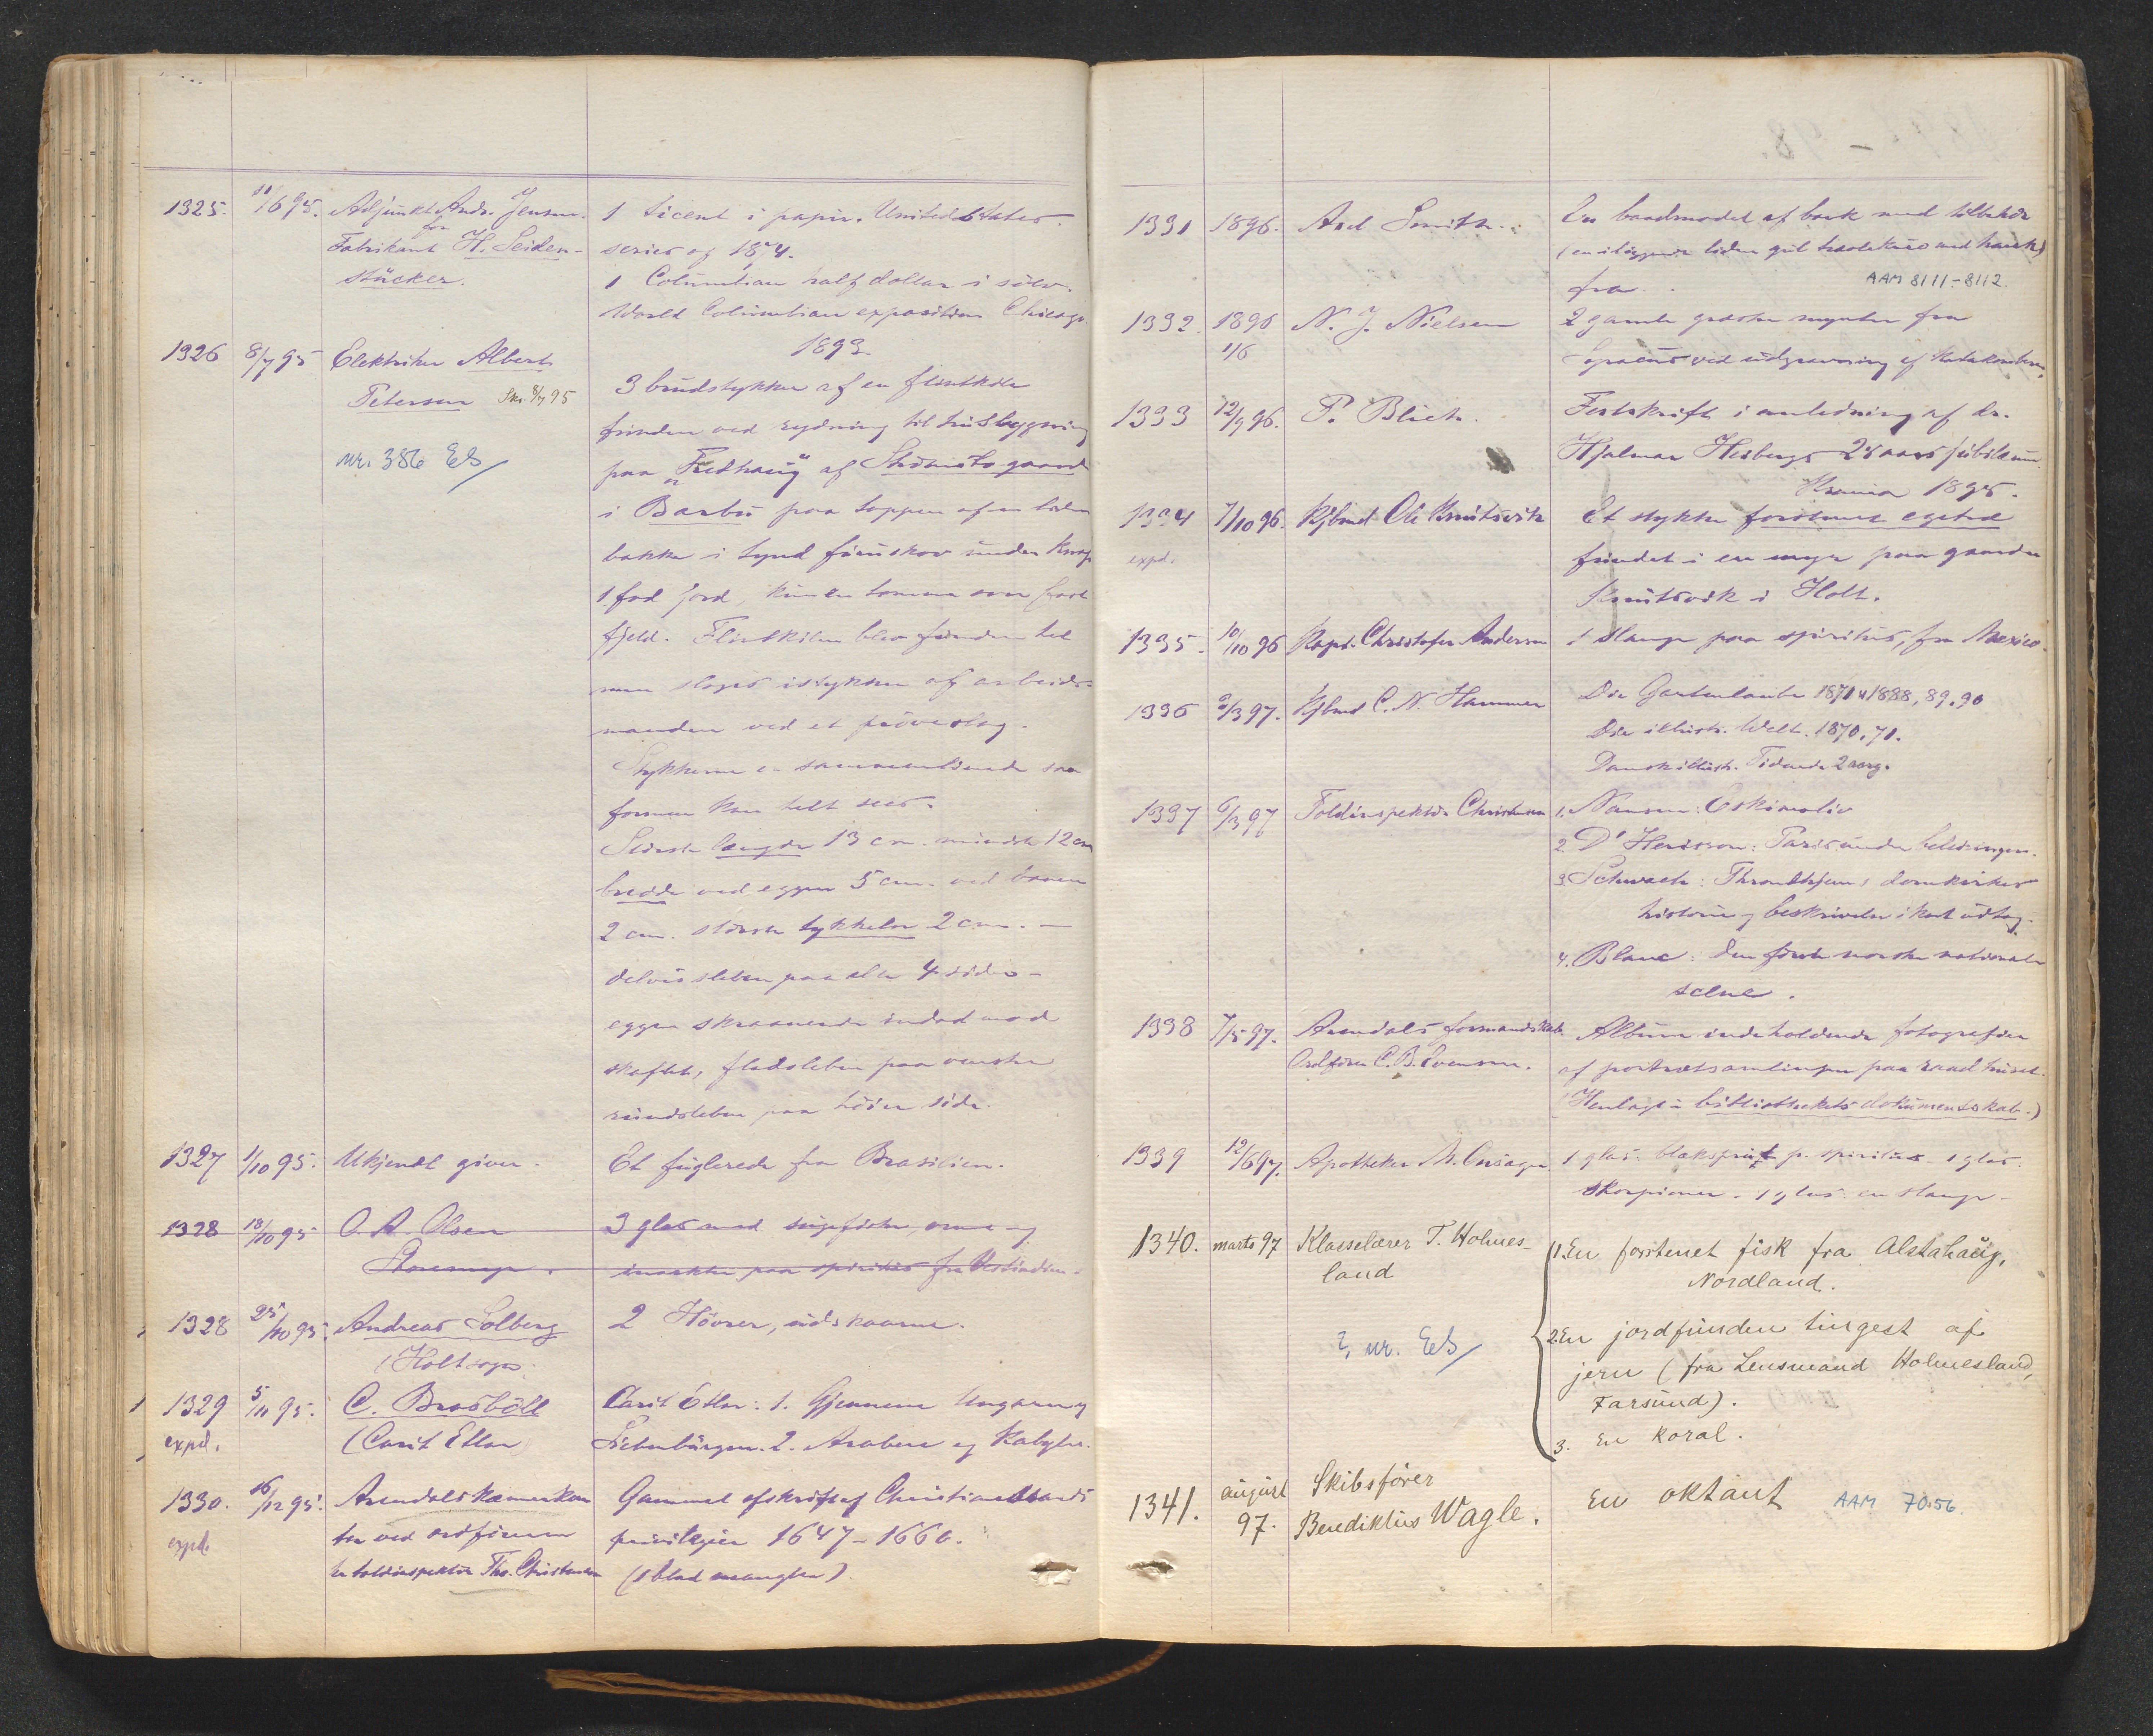 1325. 11/6 95. Adjunkt Andr. Jensen. 1 ticent i papir. United States
for
Fabrikant H. Seiden- series of 1874.
stücker. 1 Columbian half dollar i sölv.
World Columbian exposition Chicago
1893.
1326 8/7 95 Elektriker Albert
Petersen Skr. 8/7 95 3 brudstykker af en flintkile
funden ved rydning til husbygning
nr. 386 EB paa Fredhaug af Strömsbo gaard
i Barbu paa toppen af en liden
bakke i tynd furuskov under knap
1 fod jord, kun en tomme over fast
fjeld. Flintkilen blev funden hel
men sloges istykker af arbeids-
manden ved et pröveslag.
Stykkerne er sammenlimede saa
formen kan helt sees.
Störste længde 13 cm. mindste 12 cm
bredde ved eggen 5 cm. ved banen
2 cm. största tykkelse 2 cm. —
delvis sleben paa alle 4 sider —
eggen skraanende indad mod
skaftet, fladsleben paa venstre
rundsleben paa höire side.
1327 1/10 95. Ukjendt giver. Et fuglerede fra Brasilien.
1328 18/10 95 O. A. Olsen 3 glas med sugefiske, orme og
insekter paa spiritus fra Vestindien.
1328 25/10 95. Andreas Solberg 2 Hövrer, udskaarne.
Holt sogn.
1329 5/11 95. C. Brosböll Carit Etlar: 1. Gjennem Ungarn og
expd. (Carit Etlar) Siebenbürgen. 2. Arabere og Kabyler.
1330. 16/12 95. Arendals kæmnerkon Gammel afskrift af Christianssands
expd. tor ved ordföreren privilegier 1647-1660.
hr toldinspektör Tho. Christensen (1 blad mangler)
1331 1896. Axel Smith. En baadmodel af bark med tilbehör
(en iliggende liden gul traekniv med hank)
fra . . AAM 8111-8112.
1332. 1896 N. J. Nielsen 2 gamle græske mynter fra
1/6 Syracus ved udgravning af Katakomberne,
1333 12/9 96. P. Blich. Festskrift i anledning af dr.
Hjalmar Heibergs 25 aars jubilæum
Kr.ania 1895.
1334 7/10 96. Kjbmd Ole Knutsvik Et stykke forstenet egetræ
expd. fundet i en myr paa gaarden
Knutsvik i Holt.
1335. 10/10 96 Kapt. Christofer Andersen 1 slange paa spiritus, fra Mexico.
1336 3/3 97. Kjbmd C. N. Hammer Die Gartenlaube 1871, 1888, 89, 90
Die illustr. Welt. 1870, 71.
Dansk illustr. Tidende 2 aarg.
1337 6/3 97 Toldinspektör Christensen 1. Nansen: Eskimoliv
2. D'Herisson: Paris under beleiringen.
3. Schwach: Throndhjems domkirkes
historie og beskrivelse i kort udtog.
4. Blanc: Den förste norske nationale
scene.
1338 7/5 97. Arendals formandskab. Album indeholdende fotografier
Ordförer C. B. Svensen. af portrætsamlingen paa raadhuset.
(Henlagt i bibliothekets dokumentskab.)
1339 12/6 97. Apotheker M. Onsager 1 glas: blæksprut p. spiritus. 1 glas:
skorpioner. 1 glas: en slange.
1340. marts 97 Klasselærer T. Holmes- 1. En forstenet fisk fra Alstahaug,
land Nordland.
?, nr. EB 2. En jordfunden tingest af
jern (fra Lensmand Holmesland,
Farsund).
3. En koral.
1341. august Skibsförer En oktant AAM 7056.
97. Benediktus Wagle.